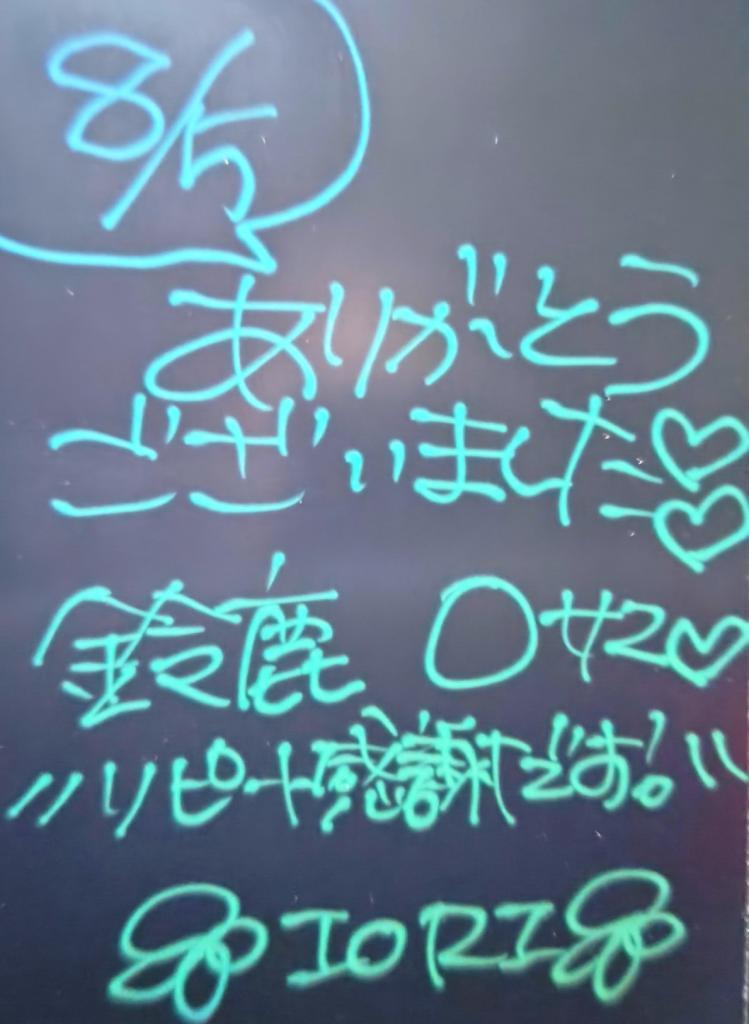 8/5
ありがとう
ございました♡♡
鈴鹿 〇サマ♡
〃リピート感謝です。〃
IORI